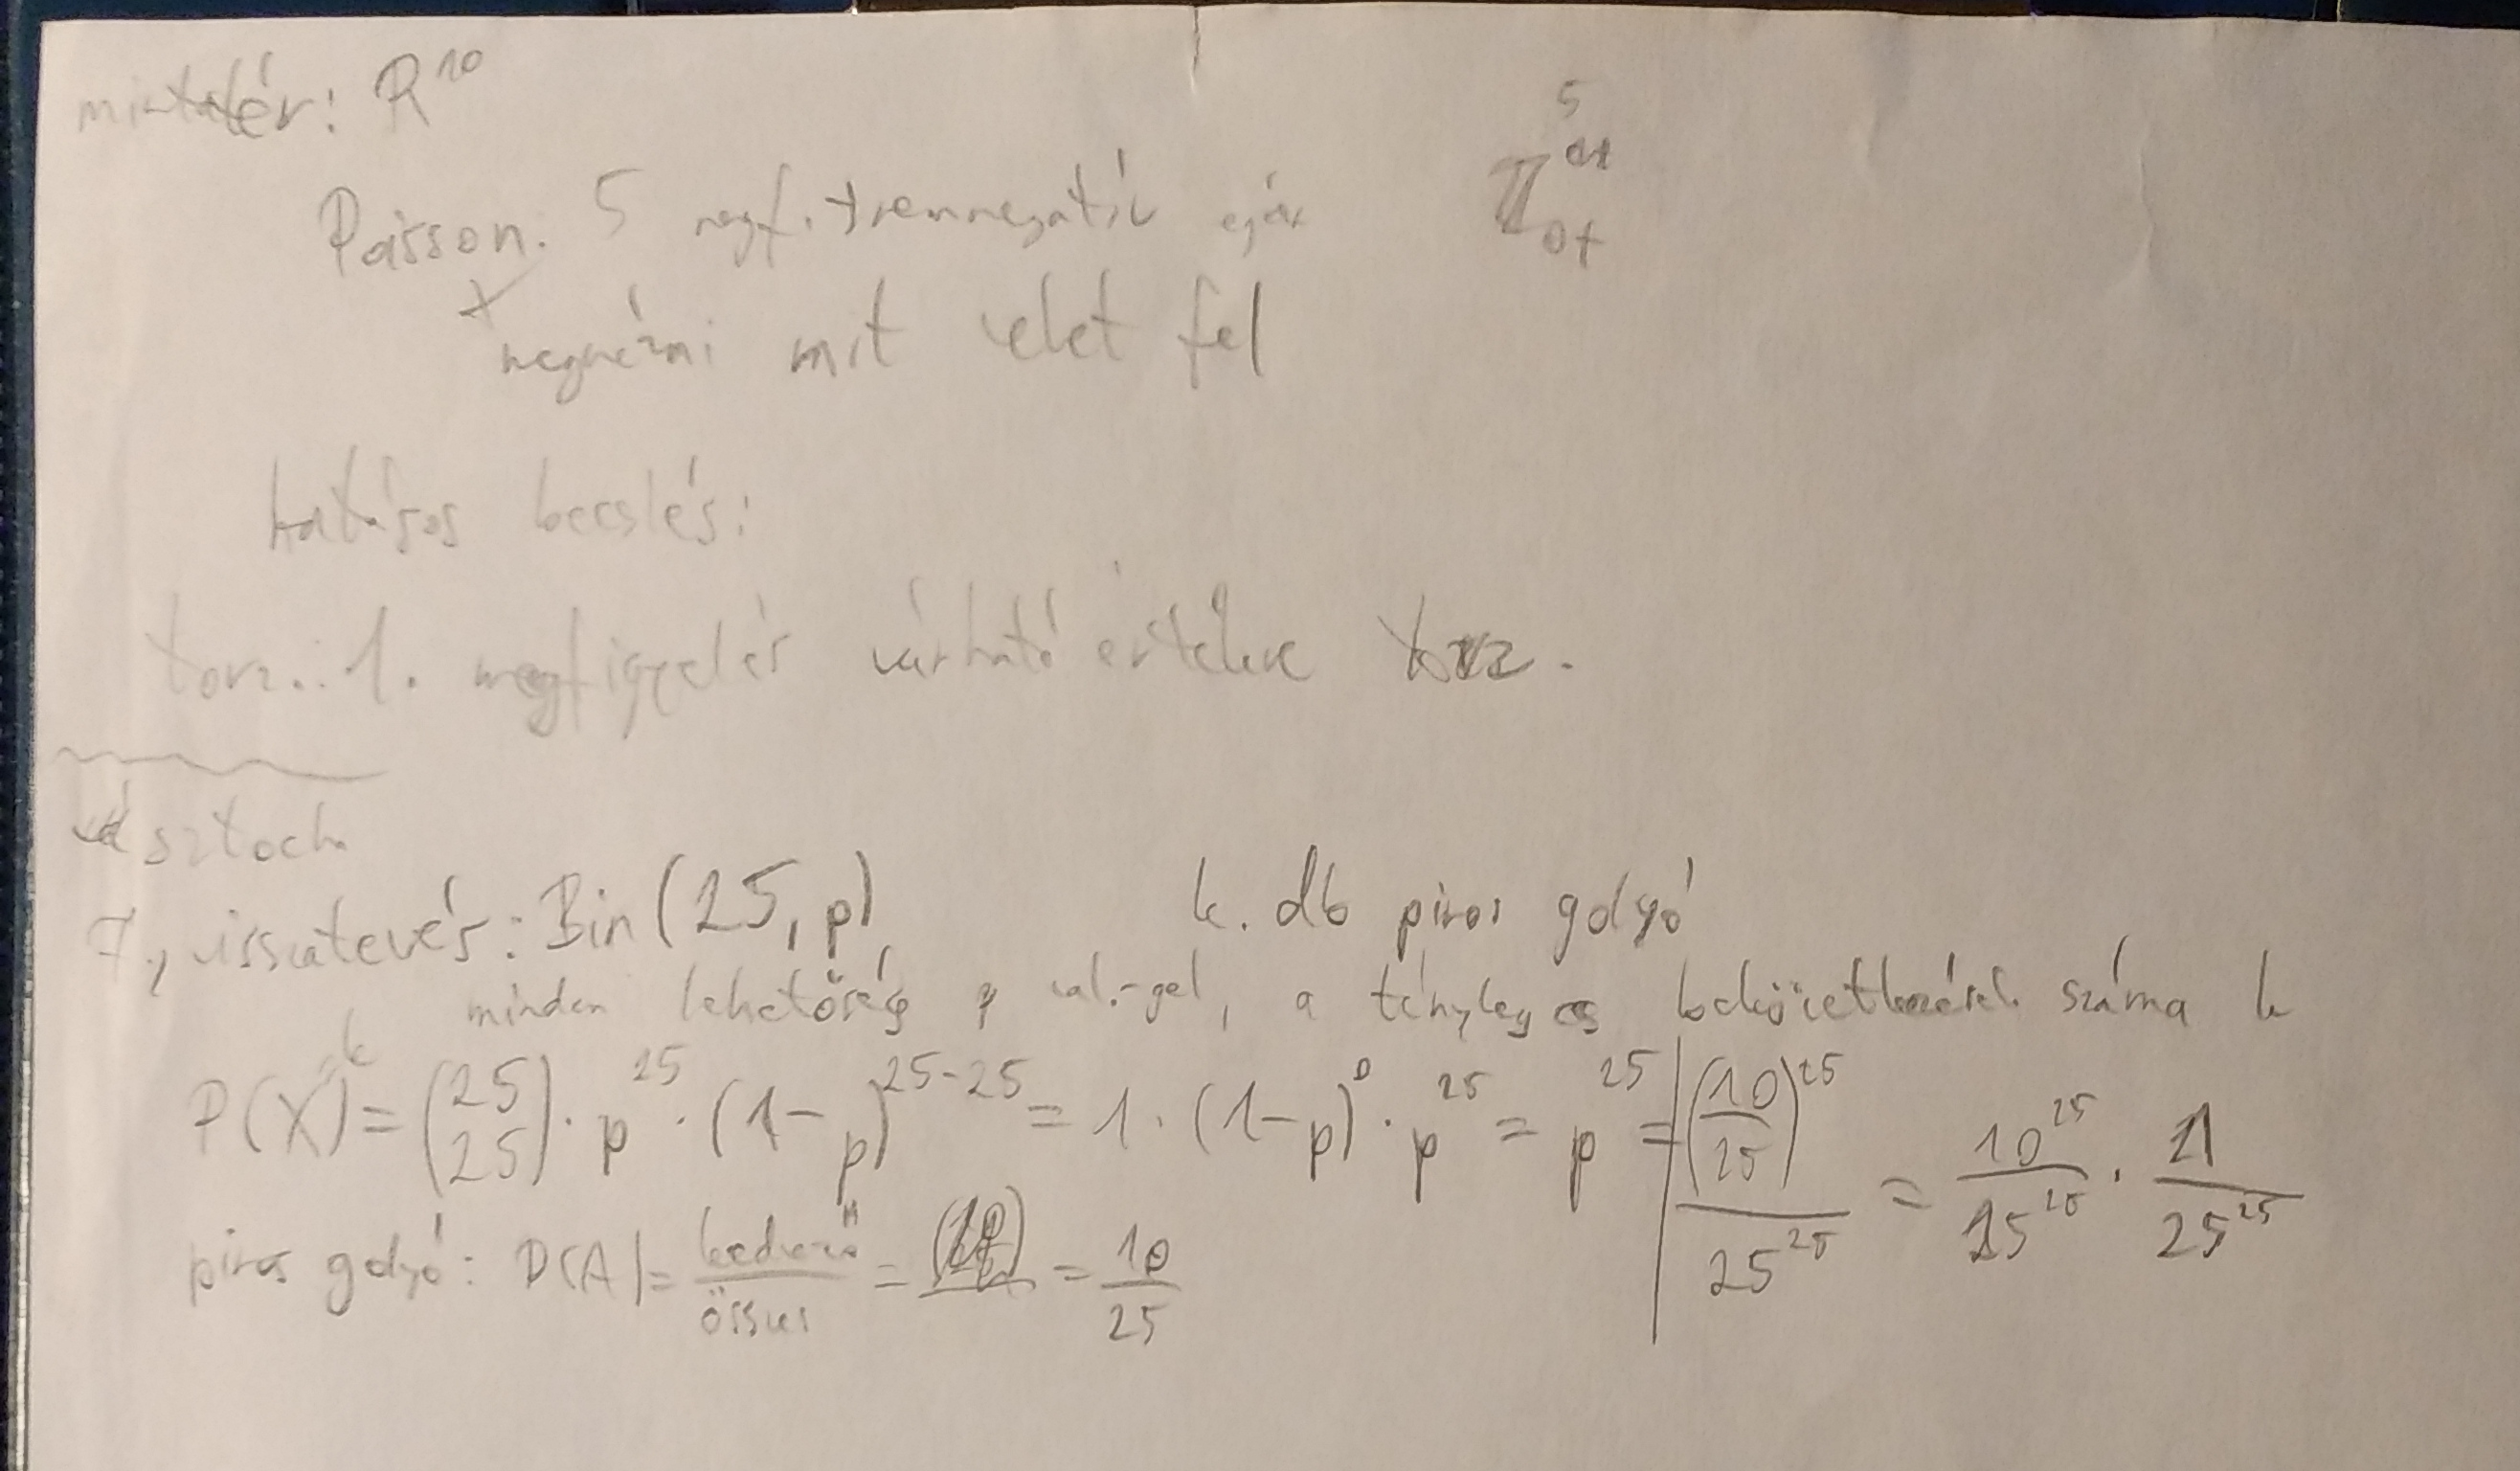 mintatér: R^10
Poisson: 5 megf. nemnegatív egész Z_0+^5
megnézni mit vehet fel
hatásos becslés:
torz.: 1. megfigyelés várható értéke torz.
sztoch
7, visszatevés: Bin(25, p) k. db piros golyó
minden lehetőség p val.-gel, a tényleges bekövetkezések száma k
P(X=k) = (25 25) · p^25 · (1-p)^25-25 = 1 · (1-p)^0 · p^25 = p^25 = (10/25)^25 / 25^25 = 10^25/25^25 · 1/25^25
piros golyó: P(A) = kedvező/összes = = 10/25